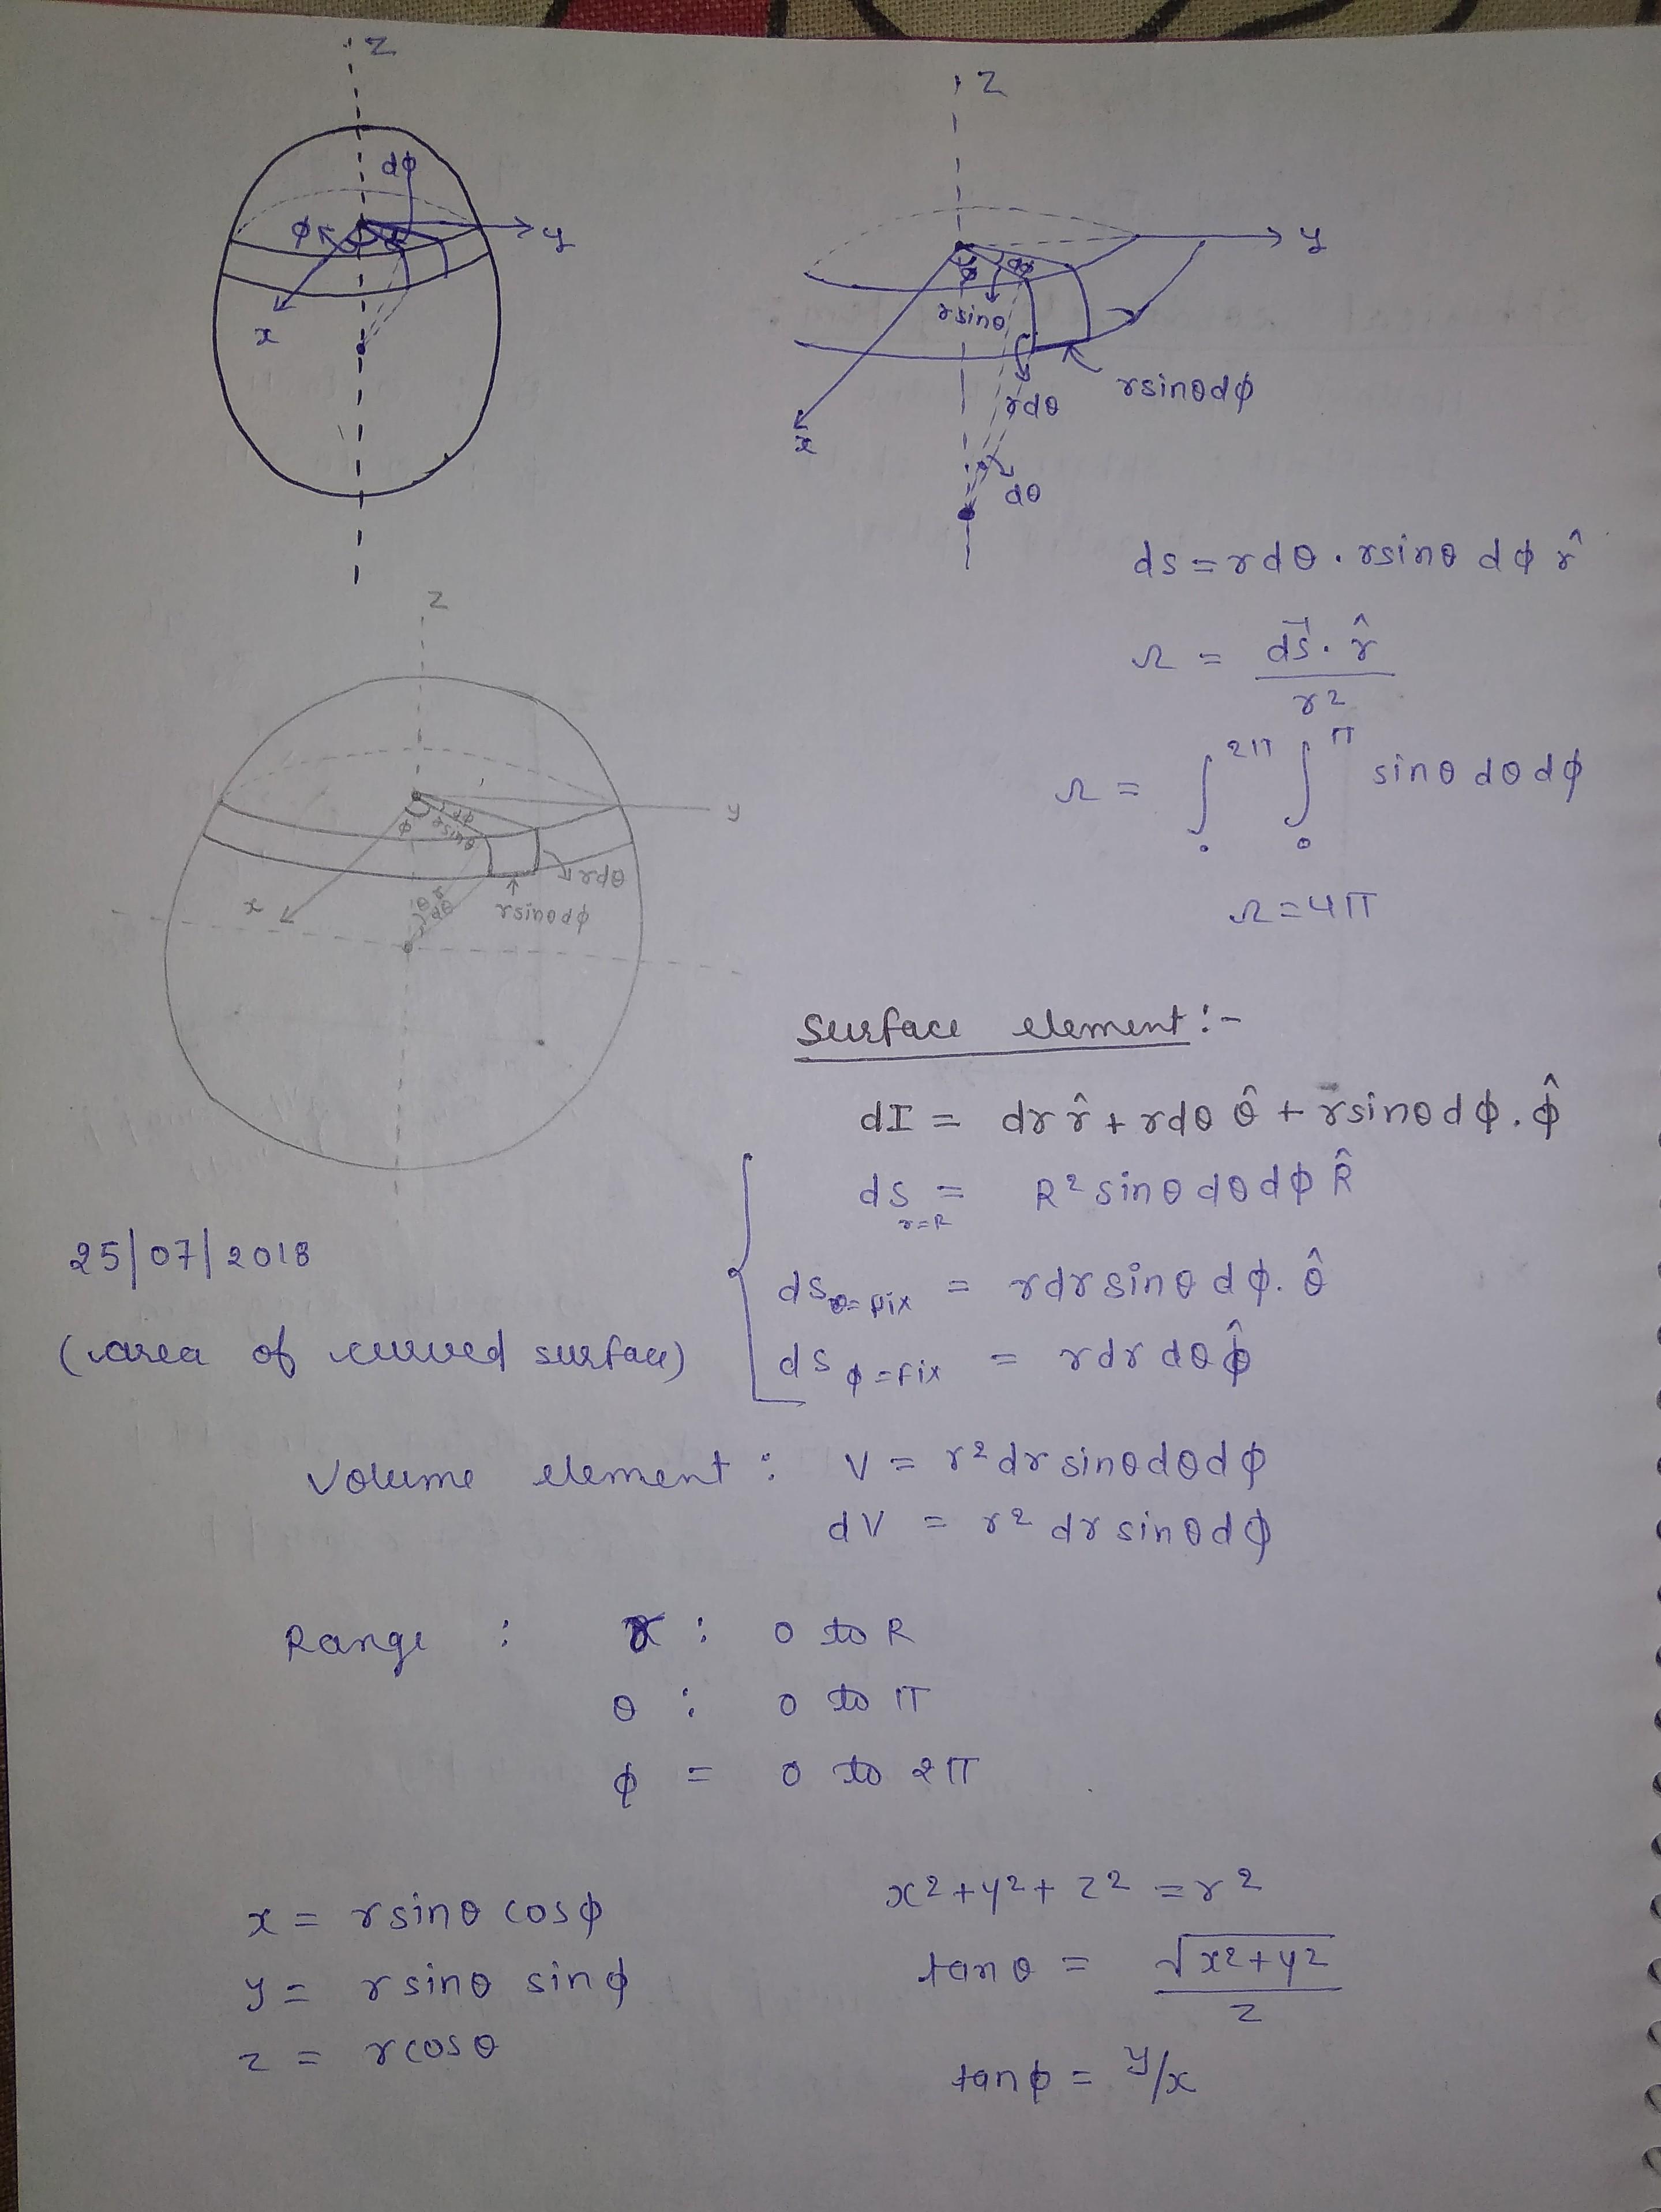 z
dϕ
ϕ
y
x
z
y
ϕ
dϕ
rsinθ
rsinθdϕ
rdθ
x
dθ
ds = rdθ . rsinθ dϕ r̂
Ω = ds⃗ . r̂ / r²
Ω = ∫₀^2π ∫₀^π sinθ dθ dϕ
Ω = 4π
z
y
ϕ
dϕ
rsinθ
rdθ
θ
r
dθ
rsinθdϕ
x
Surface element :-
dI = dr r̂ + rdθ θ̂ + rsinθdϕ . ϕ̂
ds r=R = R² sinθ dθ dϕ R̂
25/07/2018
ds θ=fix = rdr sinθ dϕ. θ̂
(area of curved surface)
ds ϕ=fix = rdr dθ ϕ̂
Volume element : V = r² dr sinθdθdϕ
dV = r² dr sinθdϕ
Range : r : 0 to R
θ : 0 to π
ϕ = 0 to 2π
x = rsinθ cosϕ
y = rsinθ sinϕ
z = rcosθ
x² + y² + z² = r²
tanθ = √x²+y² / z
tanϕ = y/x